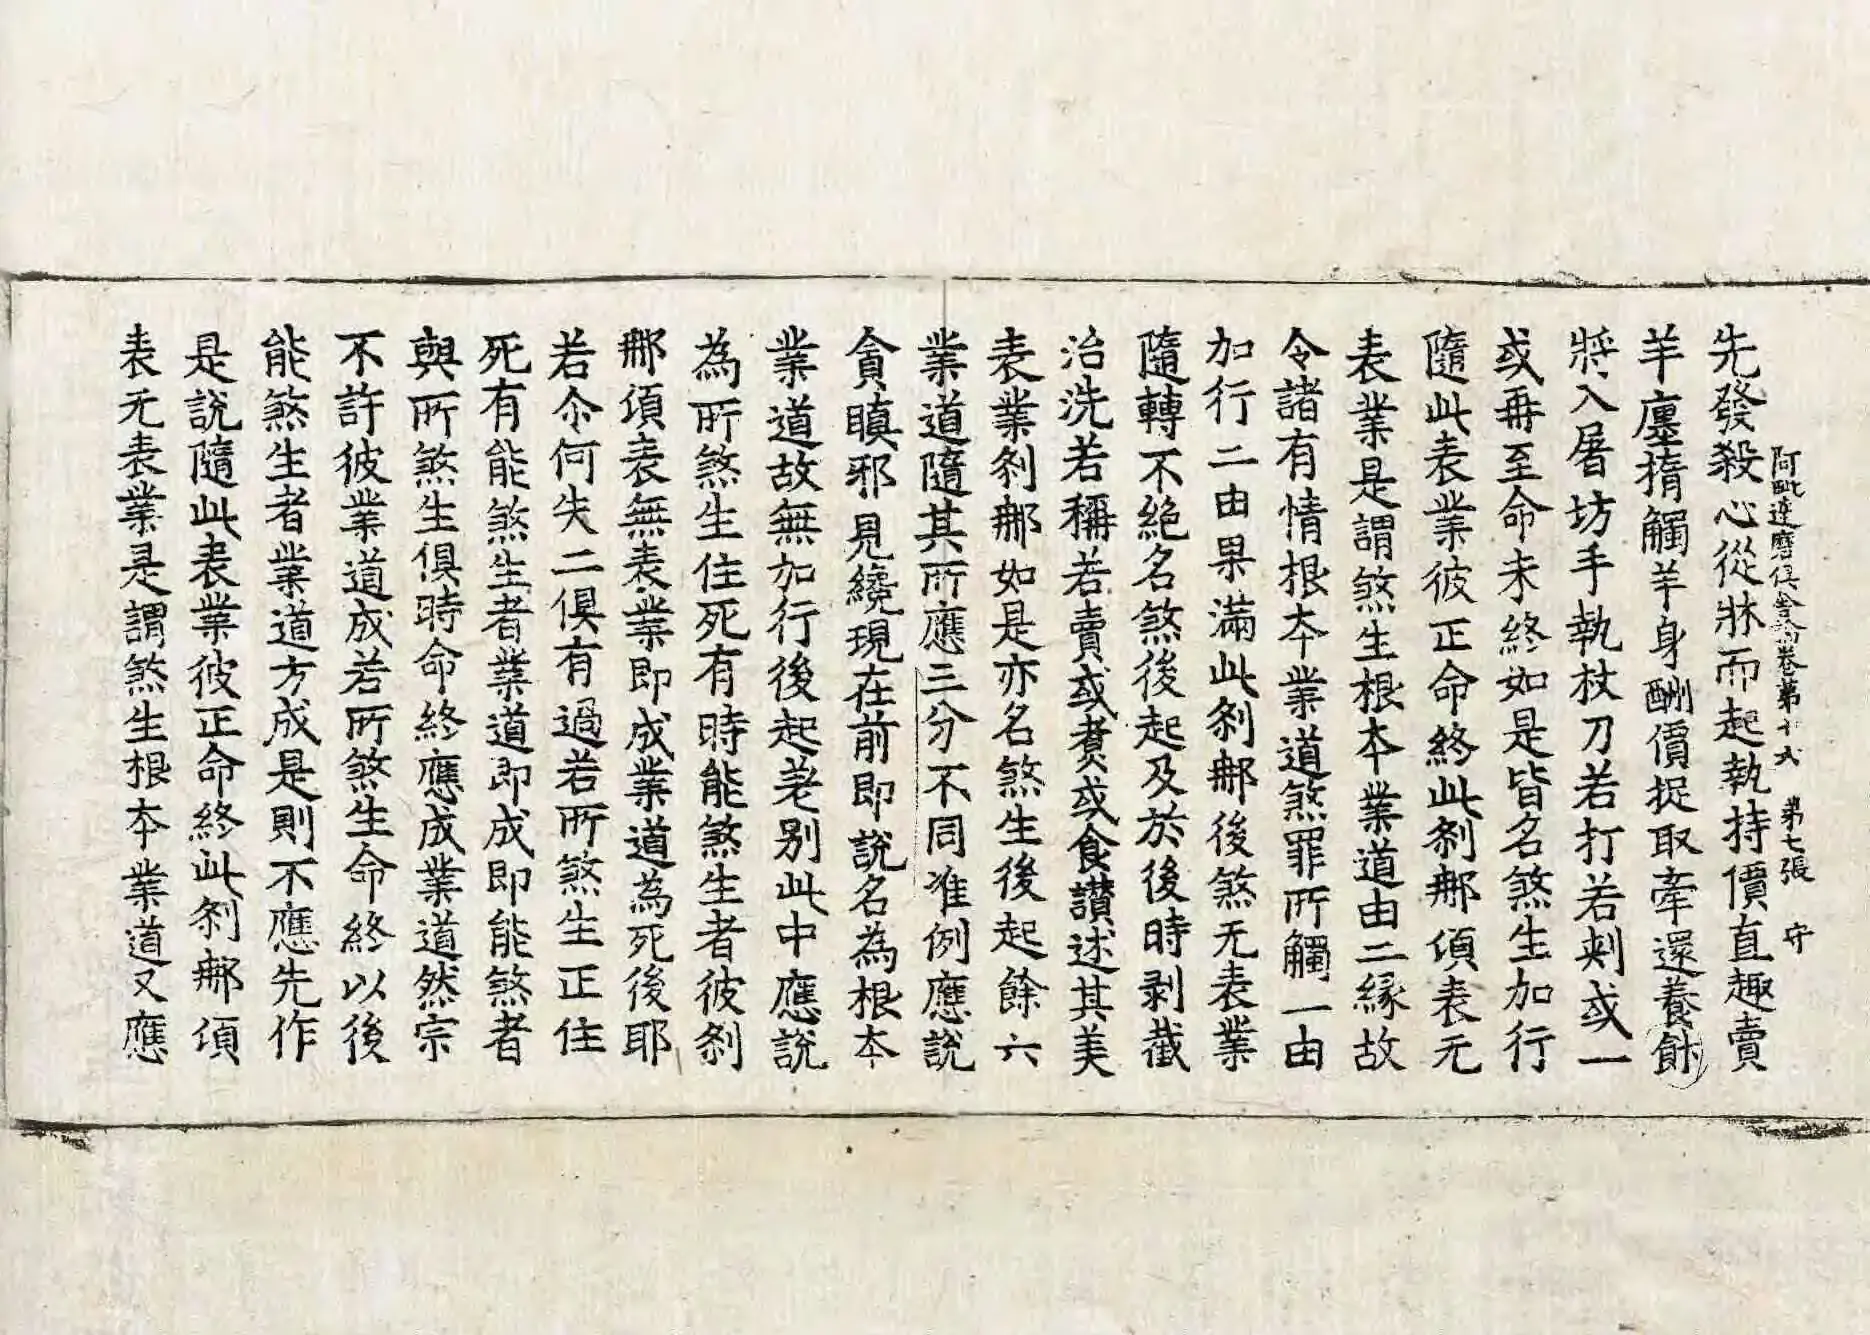 阿毗達磨俱舍論卷第十六 第七張 守
先發殺心從牀而起執持價直趣賣
羊廛揣觸羊身酬價捉取牽還養飤
將入屠坊手執杖刀若打若刺或一
或再至命未終如是皆名煞生加行
隨此表業彼正命終此刹那頃表无
表業是謂煞生根本業道由二緣故
令諸有情根本業道煞罪所觸一由
加行二由果滿此刹那後煞无表業
隨轉不絕名煞後起及於後時剥截
治洗若稱若賣或煮或食讃述其美
表業刹那如是亦名煞生後起餘六
業道隨其所應三分不同准例應說
貪瞋邪見纔現在前即說名為根本
業道故無加行後起差别此中應說
為所煞生住死有時能煞生者彼刹
那頃表無表業即成業道為死後耶
若介何失二俱有過若所煞生正住
死有能煞生者業道即成即能煞者
與所煞生俱時命終應成業道然宗
不許彼業道成若所煞生命終以後
能煞生者業道方成是則不應先作
是說隨此表業彼正命終此刹那頃
表无表業是謂煞生根本業道又應